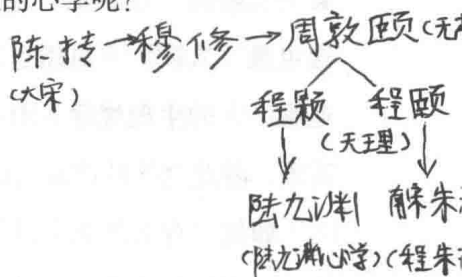 的心学呢?
陈抟→穆修→周敦颐(无
(大宋)
程颢 程颐
(天理)
陆九渊 南宋朱
(陆九渊心学)(程朱